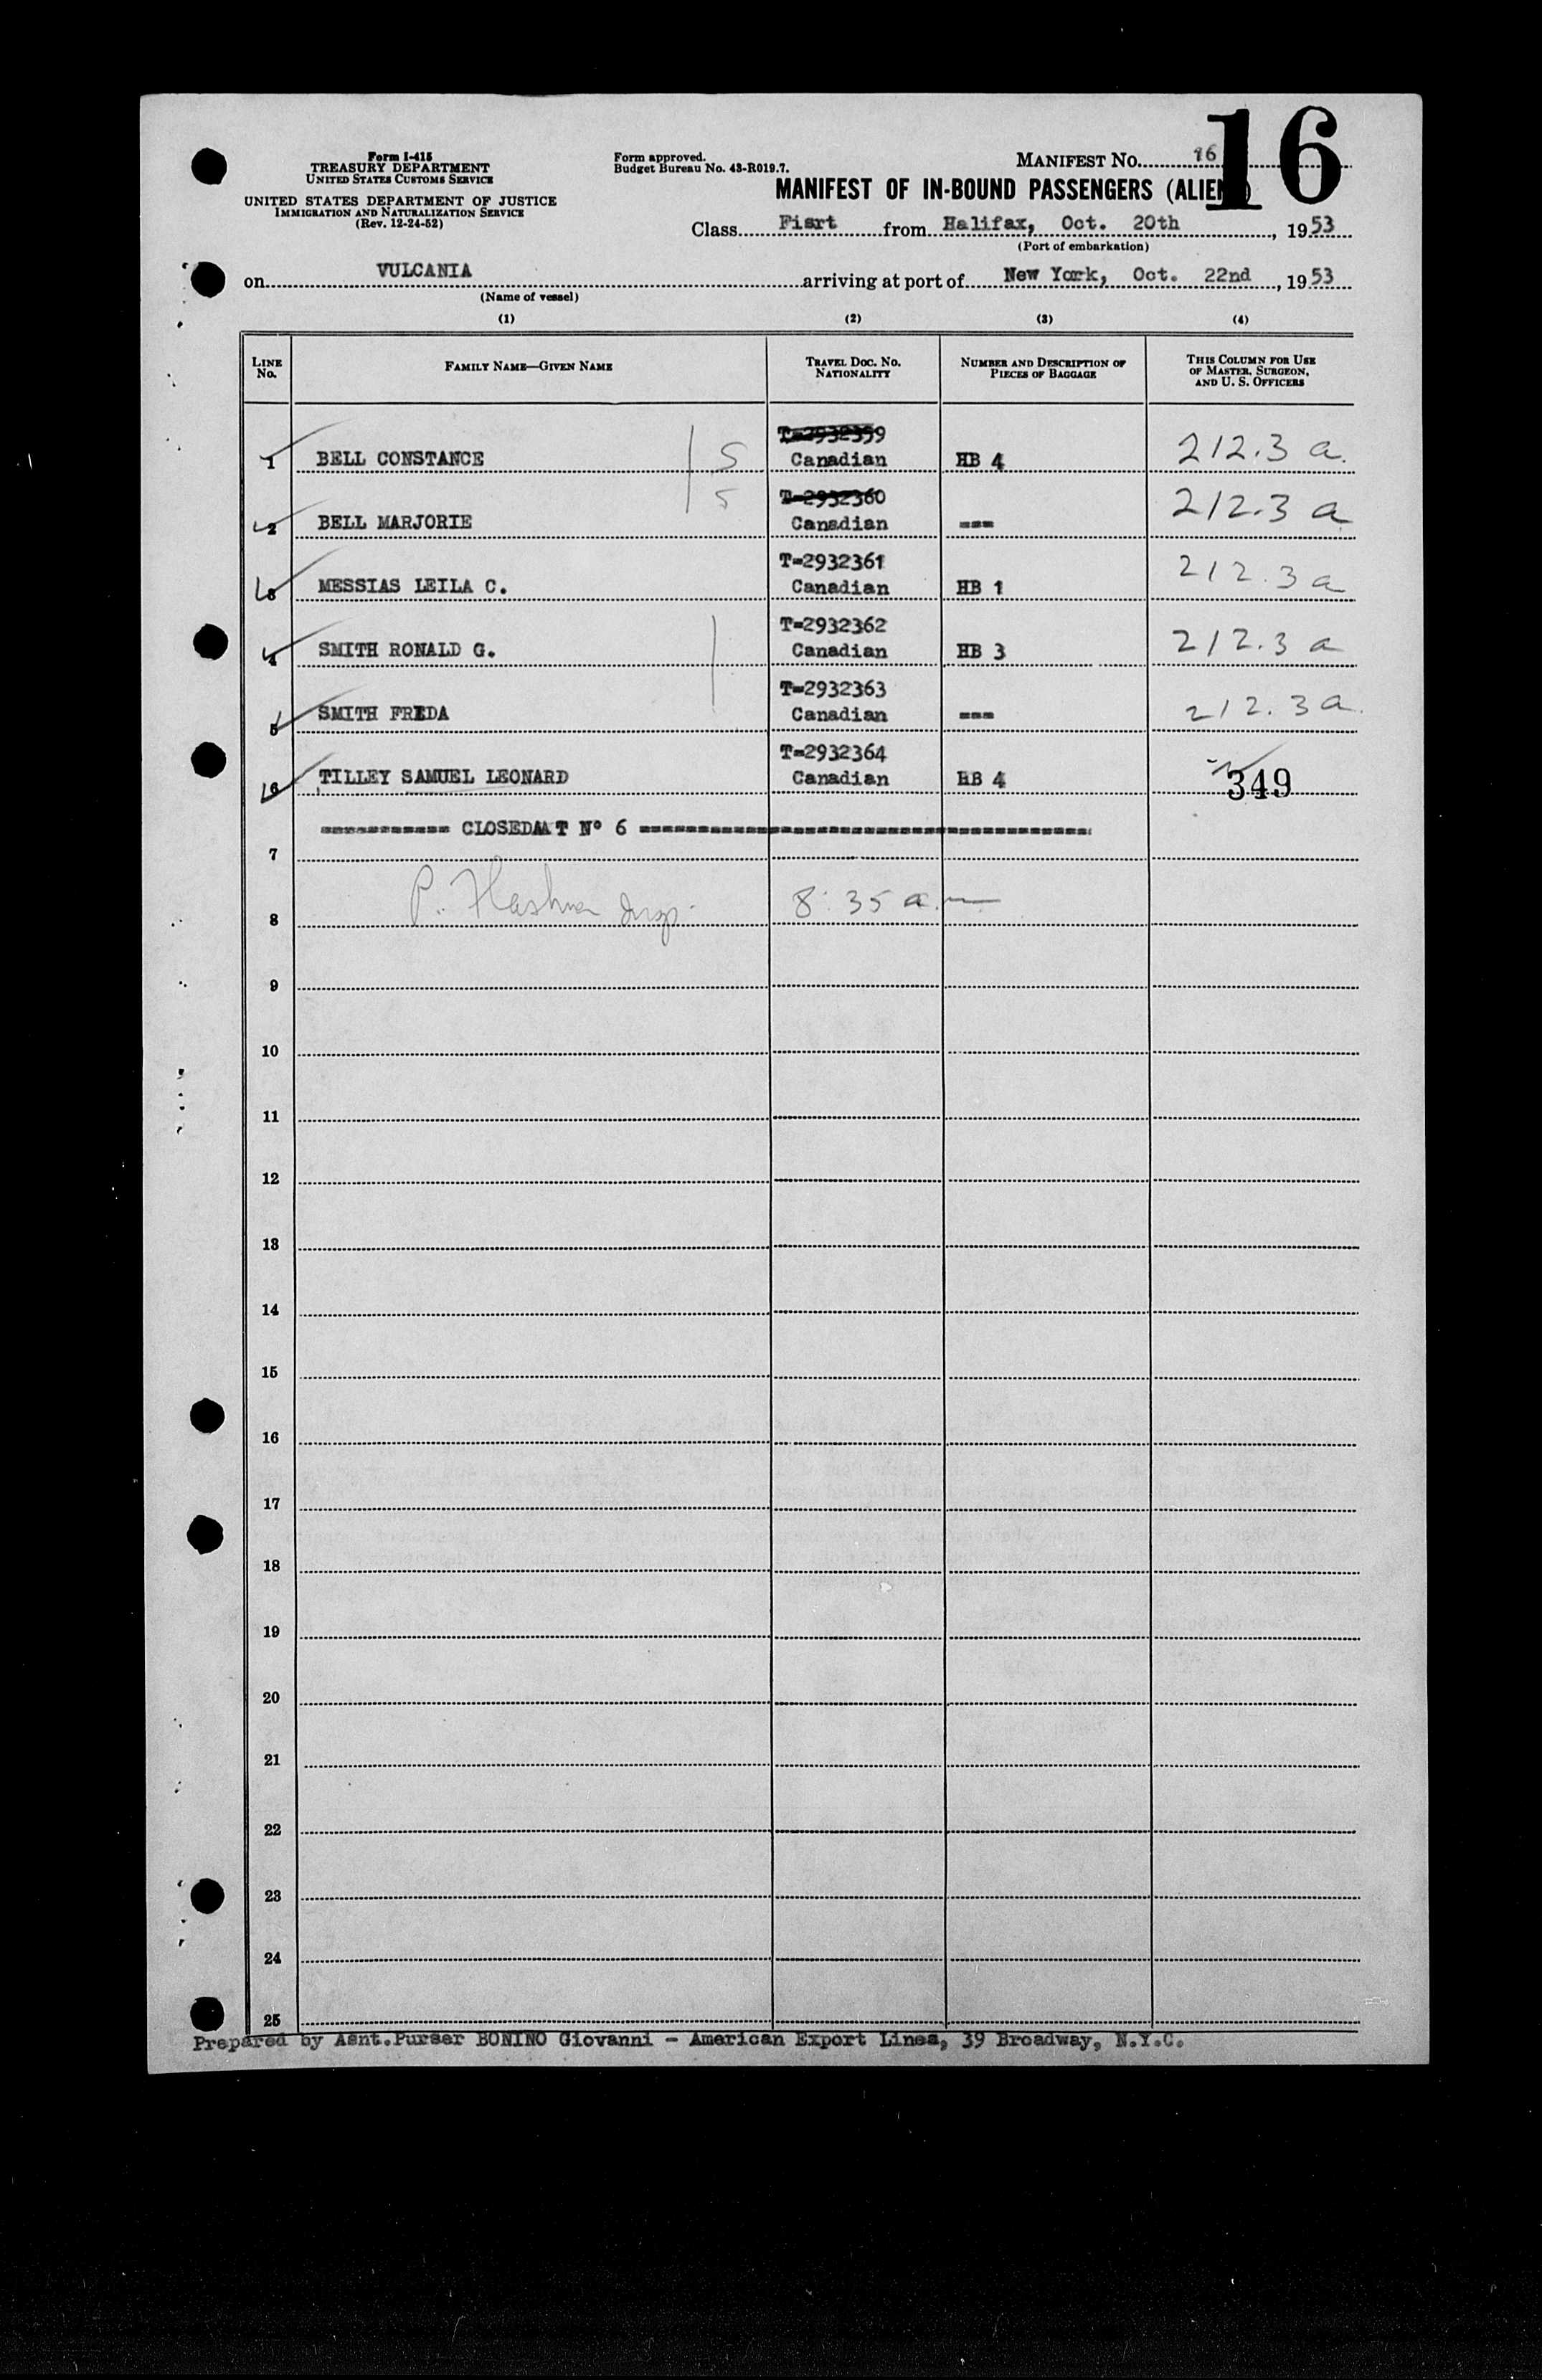 16
Form I-415
TREASURY DEPARTMENT
UNITED STATES CUSTOMS SERVICE
UNITED STATES DEPARTMENT OF JUSTICE
IMMIGRATION AND NATURALIZATION SERVICE
(Rev. 12-24-52)
Form approved.
Budget Bureau No. 43-R019.7.
MANIFEST No. 16
MANIFEST OF IN-BOUND PASSENGERS (ALIEN
Class Fisrt from Halifax, Oct. 20th, 1953
(Port of embarkation)
on VULCANIA arriving at port of New York, Oct. 22nd, 1953
(Name of vessel)
(1) (2) (3) (4)
LINE No. FAMILY NAME—GIVEN NAME TRAVEL DOC. NO. NATIONALITY NUMBER AND DESCRIPTION OF PIECES OF BAGGAGE THIS COLUMN FOR USE OF MASTER, SURGEON, AND U. S. OFFICERS
T-2932359
1 BELL CONSTANCE 5 Canadian HB 4 212.3 a.
5 T-2932360
2 BELL MARJORIE Canadian --- 212.3 a
T-2932361
3 MESSIAS LEILA C. Canadian HB 1 212.3 a
T-2932362
4 SMITH RONALD G. Canadian HB 3 212.3 a
T-2932363
5 SMITH FREDA Canadian --- 212.3 a.
T-2932364
6 TILLEY SAMUEL LEONARD Canadian HB 4 349
----------- CLOSED AT N° 6 --------------------------------------
7
8 P. Insp. 8:35 a.m
9
10
11
12
13
14
15
16
17
18
19
20
21
22
23
24
25
Prepared by Asnt.Purser BONINO Giovanni - American Export Lines, 39 Broadway, N.Y.C.